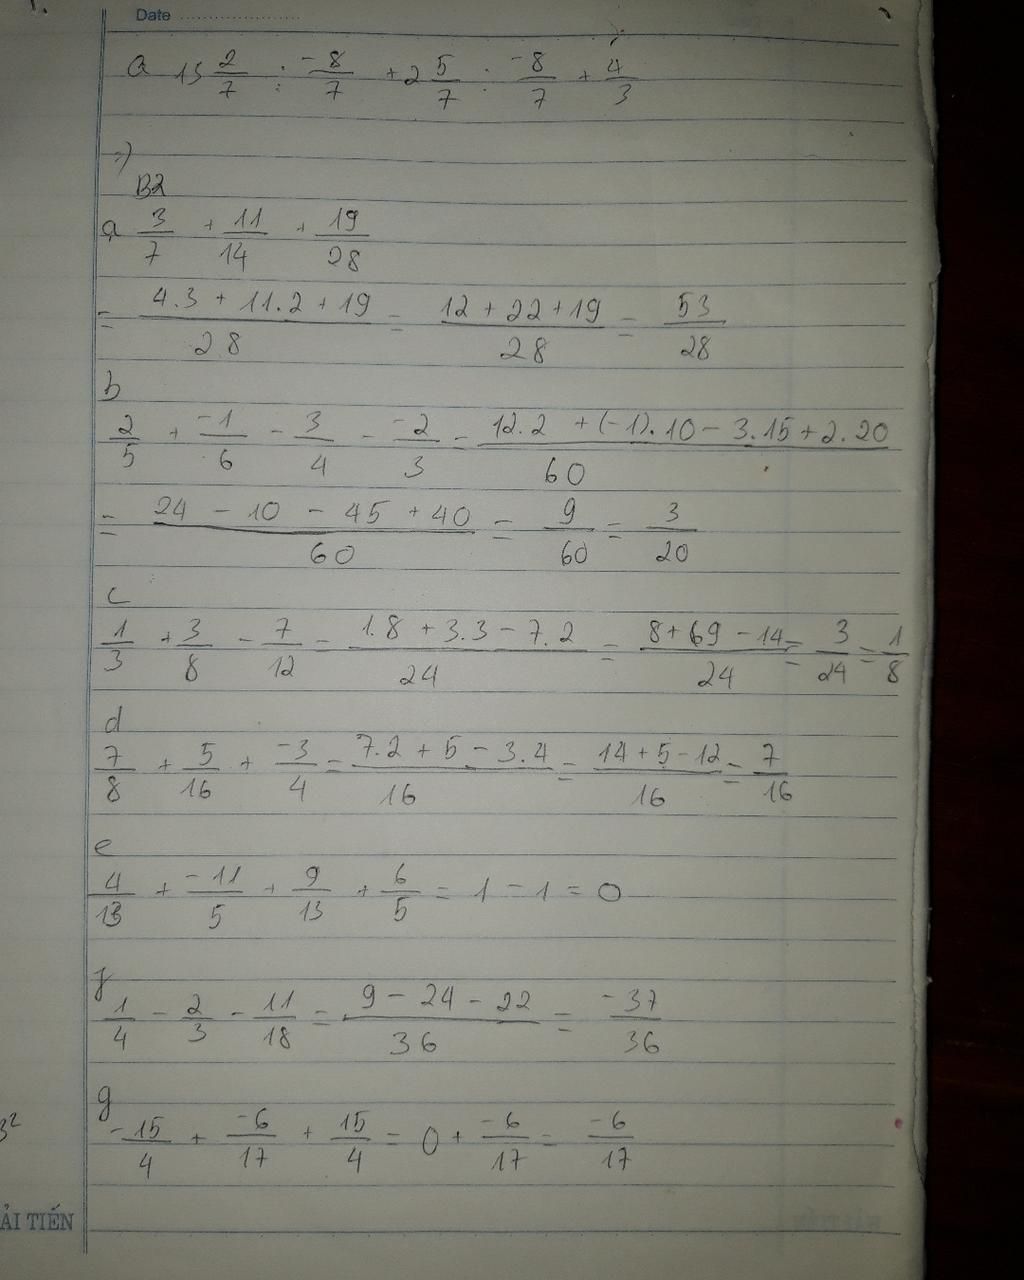 Date
a 15 2/7 : -8/7 + 2 5/7 : -8/7 + 4/3
=)
B2
a 3/7 + 11/14 + 19/28
= (4.3 + 11.2 + 19)/28 = (12 + 22 + 19)/28 = 53/28
b
2/5 + -1/6 - 3/4 - -2/3 = (12.2 + (-1).10 - 3.15 + 2.20)/60
= (24 - 10 - 45 + 40)/60 = 9/60 = 3/20
c
1/3 + 3/8 - 7/12 = (1.8 + 3.3 - 7.2)/24 = (8 + 69 - 14)/24 = 3/24 = 1/8
d
7/8 + 5/16 + -3/4 = (7.2 + 5 - 3.4)/16 = (14 + 5 - 12)/16 = 7/16
e
4/13 + -11/5 + 9/13 + 6/5 = 1 - 1 = 0
f
1/4 - 2/3 - 11/18 = (9 - 24 - 22)/36 = -37/36
g
-15/4 + -6/17 + 15/4 = 0 + -6/17 = -6/17
3²
ẢI TIẾN